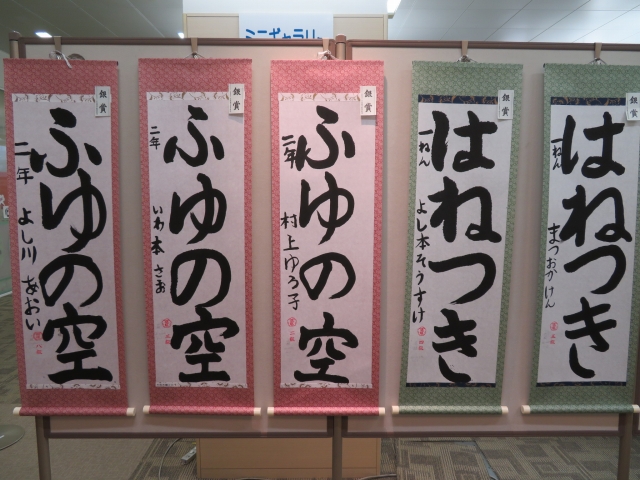 ミニギャラリー
銀賞
ふゆの空
二年 よし川 あおい
銀賞
ふゆの空
二年 いわ本 さお
銀賞
ふゆの空
二年 村上ゆう子
銀賞
はねつき
一ねん よし本そうすけ
銀賞
はねつき
一ねん まつおかけん